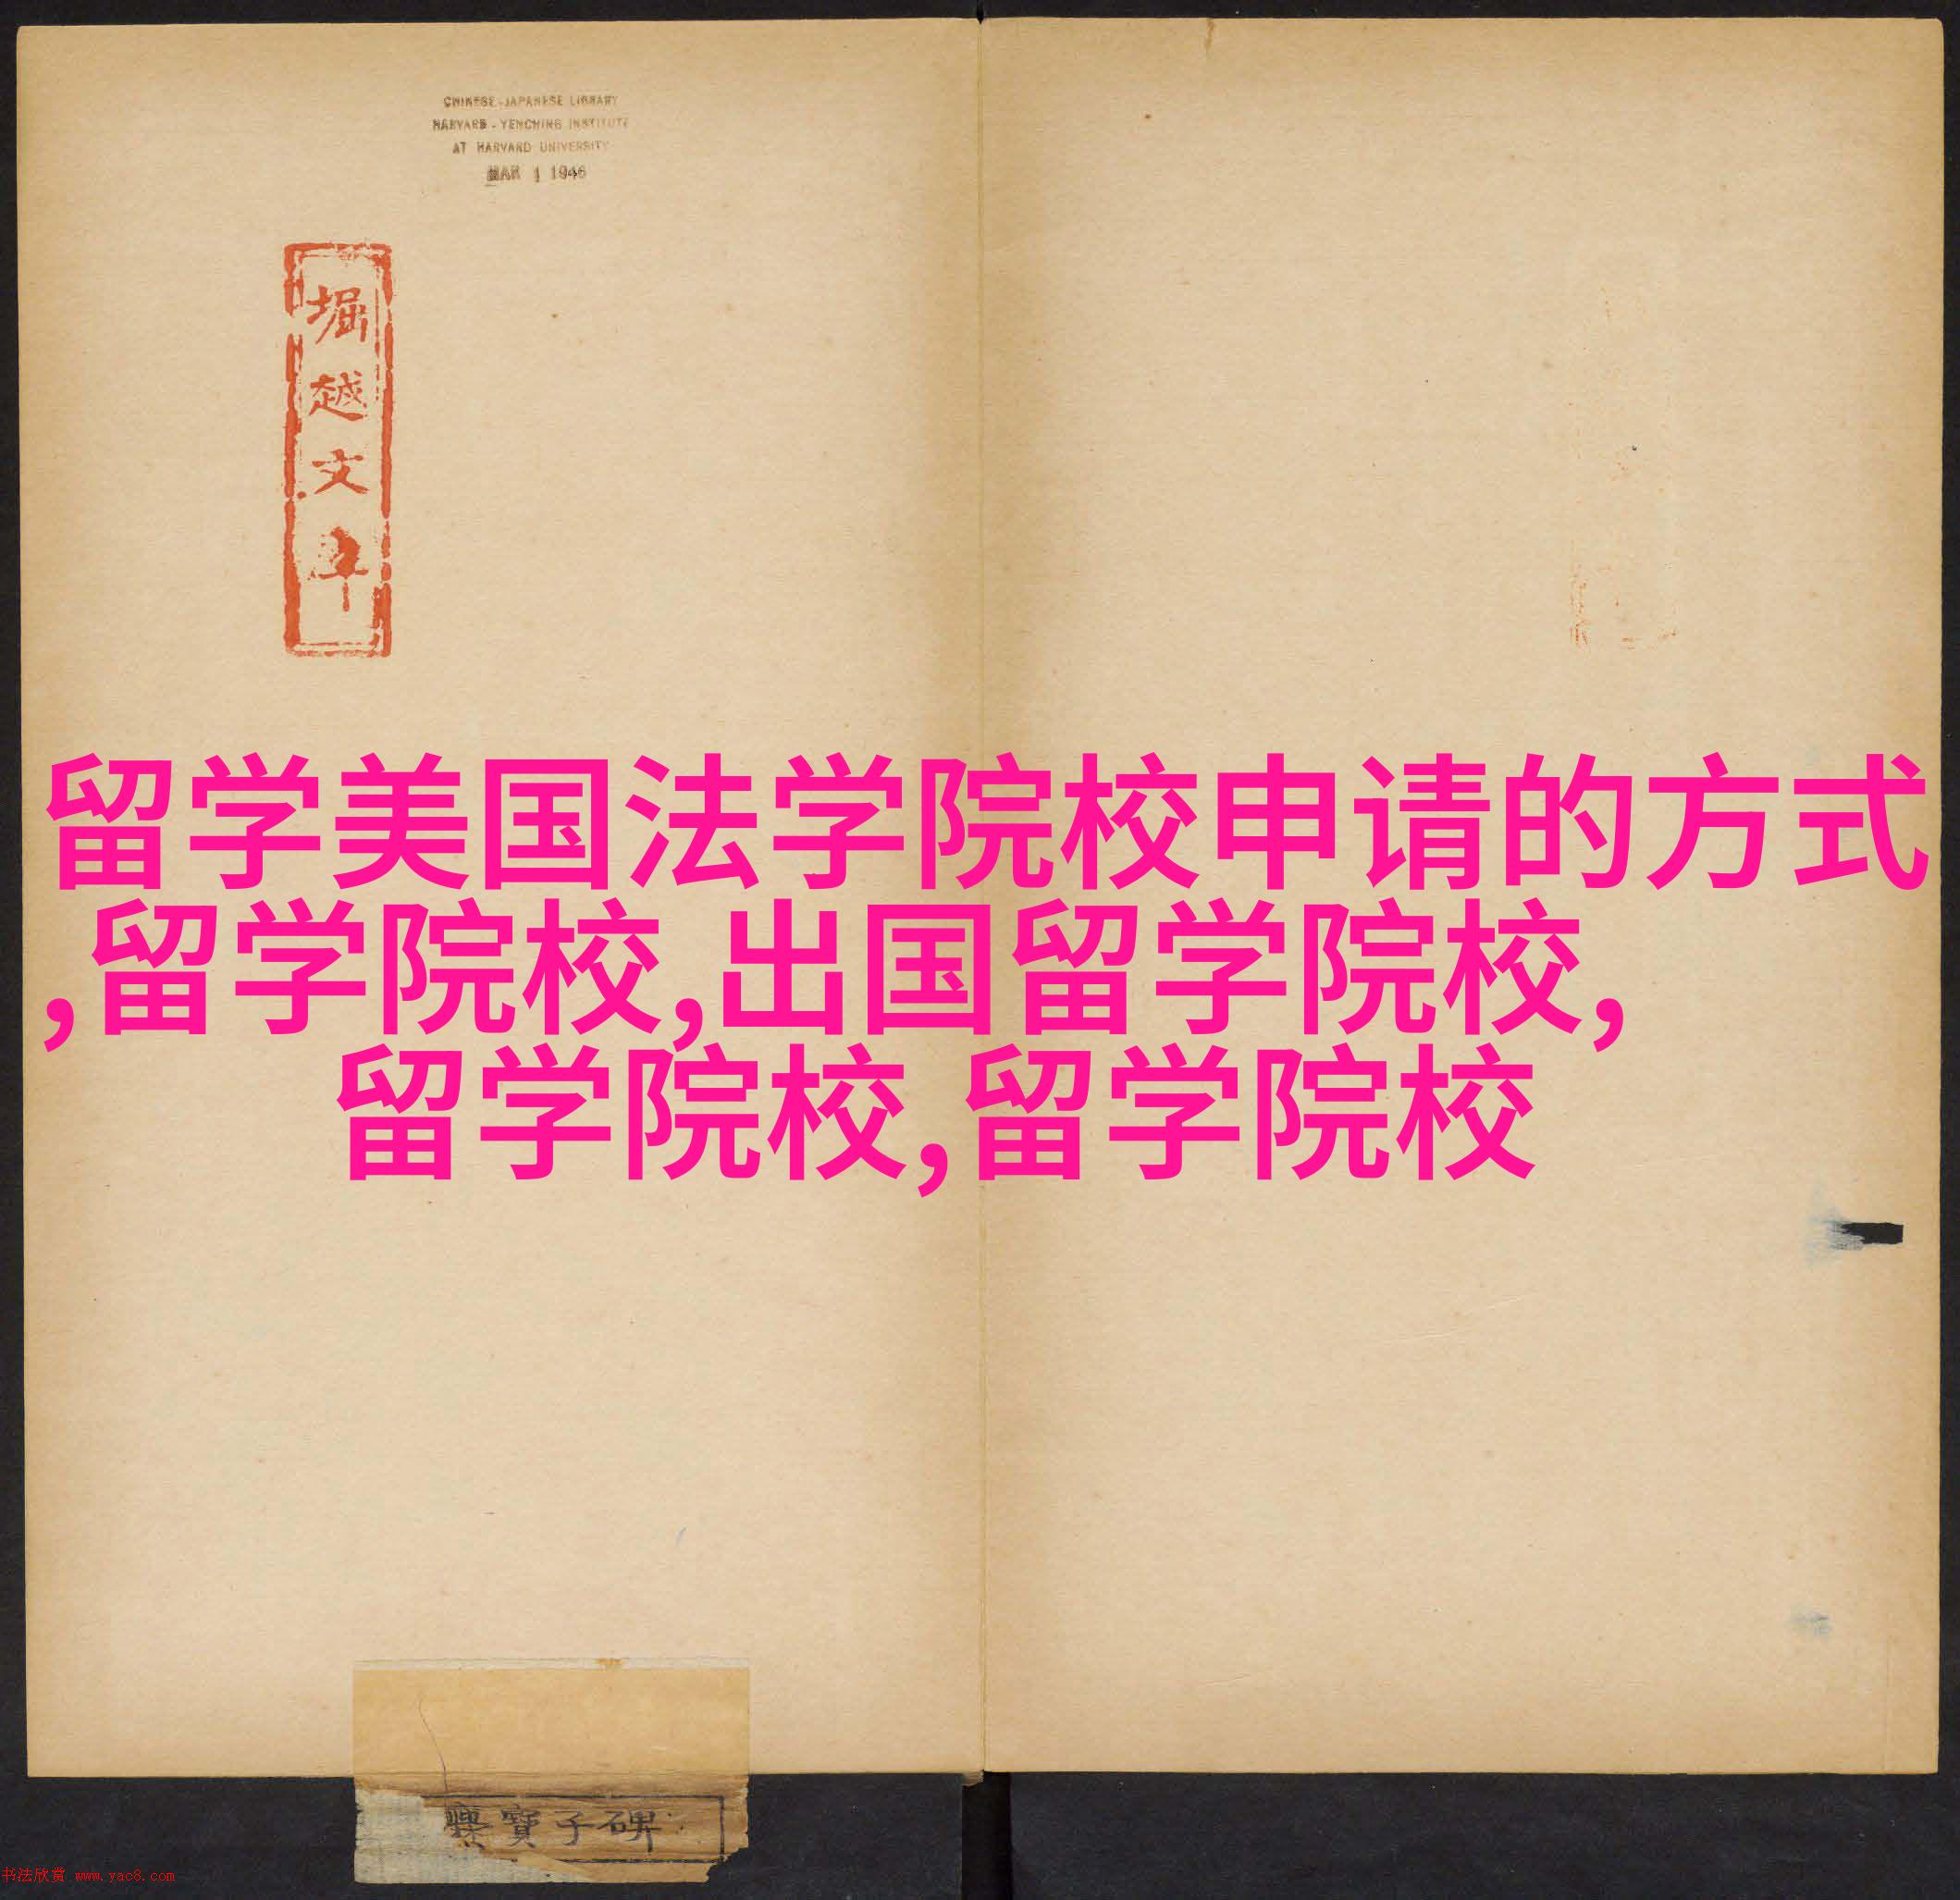 CHINESE-JAPANESE LIBRARY
HARVARD-YENCHING INSTITUTE
AT HARVARD UNIVERSITY
MAR 1 1946
堀越文庫
留学美国法学院校申请的方式
,留学院校,出国留学院校,
留学院校,留学院校
爨寶子碑
书法欣赏 www.yac8.com